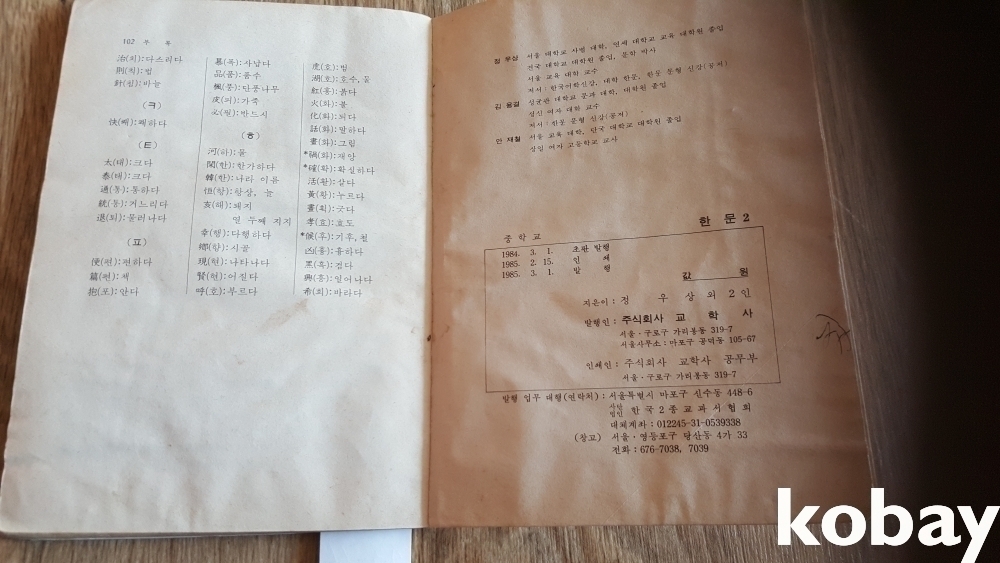 102 부 록
治(치):다스리다
刑(형):법
針(침):바늘
(ㅋ)
快(쾌):쾌하다
(ㅌ)
太(태):크다
泰(태):크다
通(통):통하다
統(통):거느리다
退(퇴):물러나다
(ㅍ)
便(편):편하다
篇(편):책
抱(포):안다
暴(폭):사납다
品(품):품수
楓(풍):단풍나무
皮(피):가죽
必(필):반드시
(ㅎ)
河(하):물
閑(한):한가하다
韓(한):나라 이름
恒(항):항상, 늘
亥(해):돼지
열 두째 지지
幸(행):다행하다
鄕(향):시골
現(현):나타나다
賢(현):어질다
呼(호):부르다
虎(호):범
湖(호):호수, 물
紅(홍):붉다
火(화):불
化(화):되다
話(화):말하다
畫(화):그림
*禍(화):재앙
*確(확):확실하다
活(활):살다
黃(황):누르다
畫(획):긋다
孝(효):효도
*候(후):기후, 철
凶(흉):흉하다
黑(흑):검다
興(흥):일어나다
希(희):바라다
정 우상 서울 대학교 사범 대학, 연세 대학교 교육 대학원 졸업
건국 대학교 대학원 졸업, 문학 박사
서울 교육 대학 교수
저서:한국어학신강, 대학 한문, 한문 문형 신강(공저)
김 용걸 성균관 대학교 문과 대학, 대학원 졸업
성신 여자 대학 교수
저서:한문 문형 신강(공저)
안 재철 서울 교육 대학, 단국 대학교 대학원 졸업
상일 여자 고등학교 교사
한 문 2
중 학 교
1984. 3. 1. 초판 발행
1985. 2. 15. 인 쇄
1985. 3. 1. 발 행
값 원
지은이: 정 우 상 외 2 인
발행인: 주식회사 교 학 사
서울·구로구 가리봉동 319-7
서울사무소:마포구 공덕동 105-67
인쇄인: 주식회사 교학사 공무부
서울·구로구 가리봉동 319-7
발행 업무 대행(연락처):서울특별시 마포구 신수동 448-6
사단법인 한국 2 종 교과서 협회
대체계좌:012245-31-0539338
(창고) 서울·영등포구 당산동 4가 33
전화:676-7038, 7039
kobay